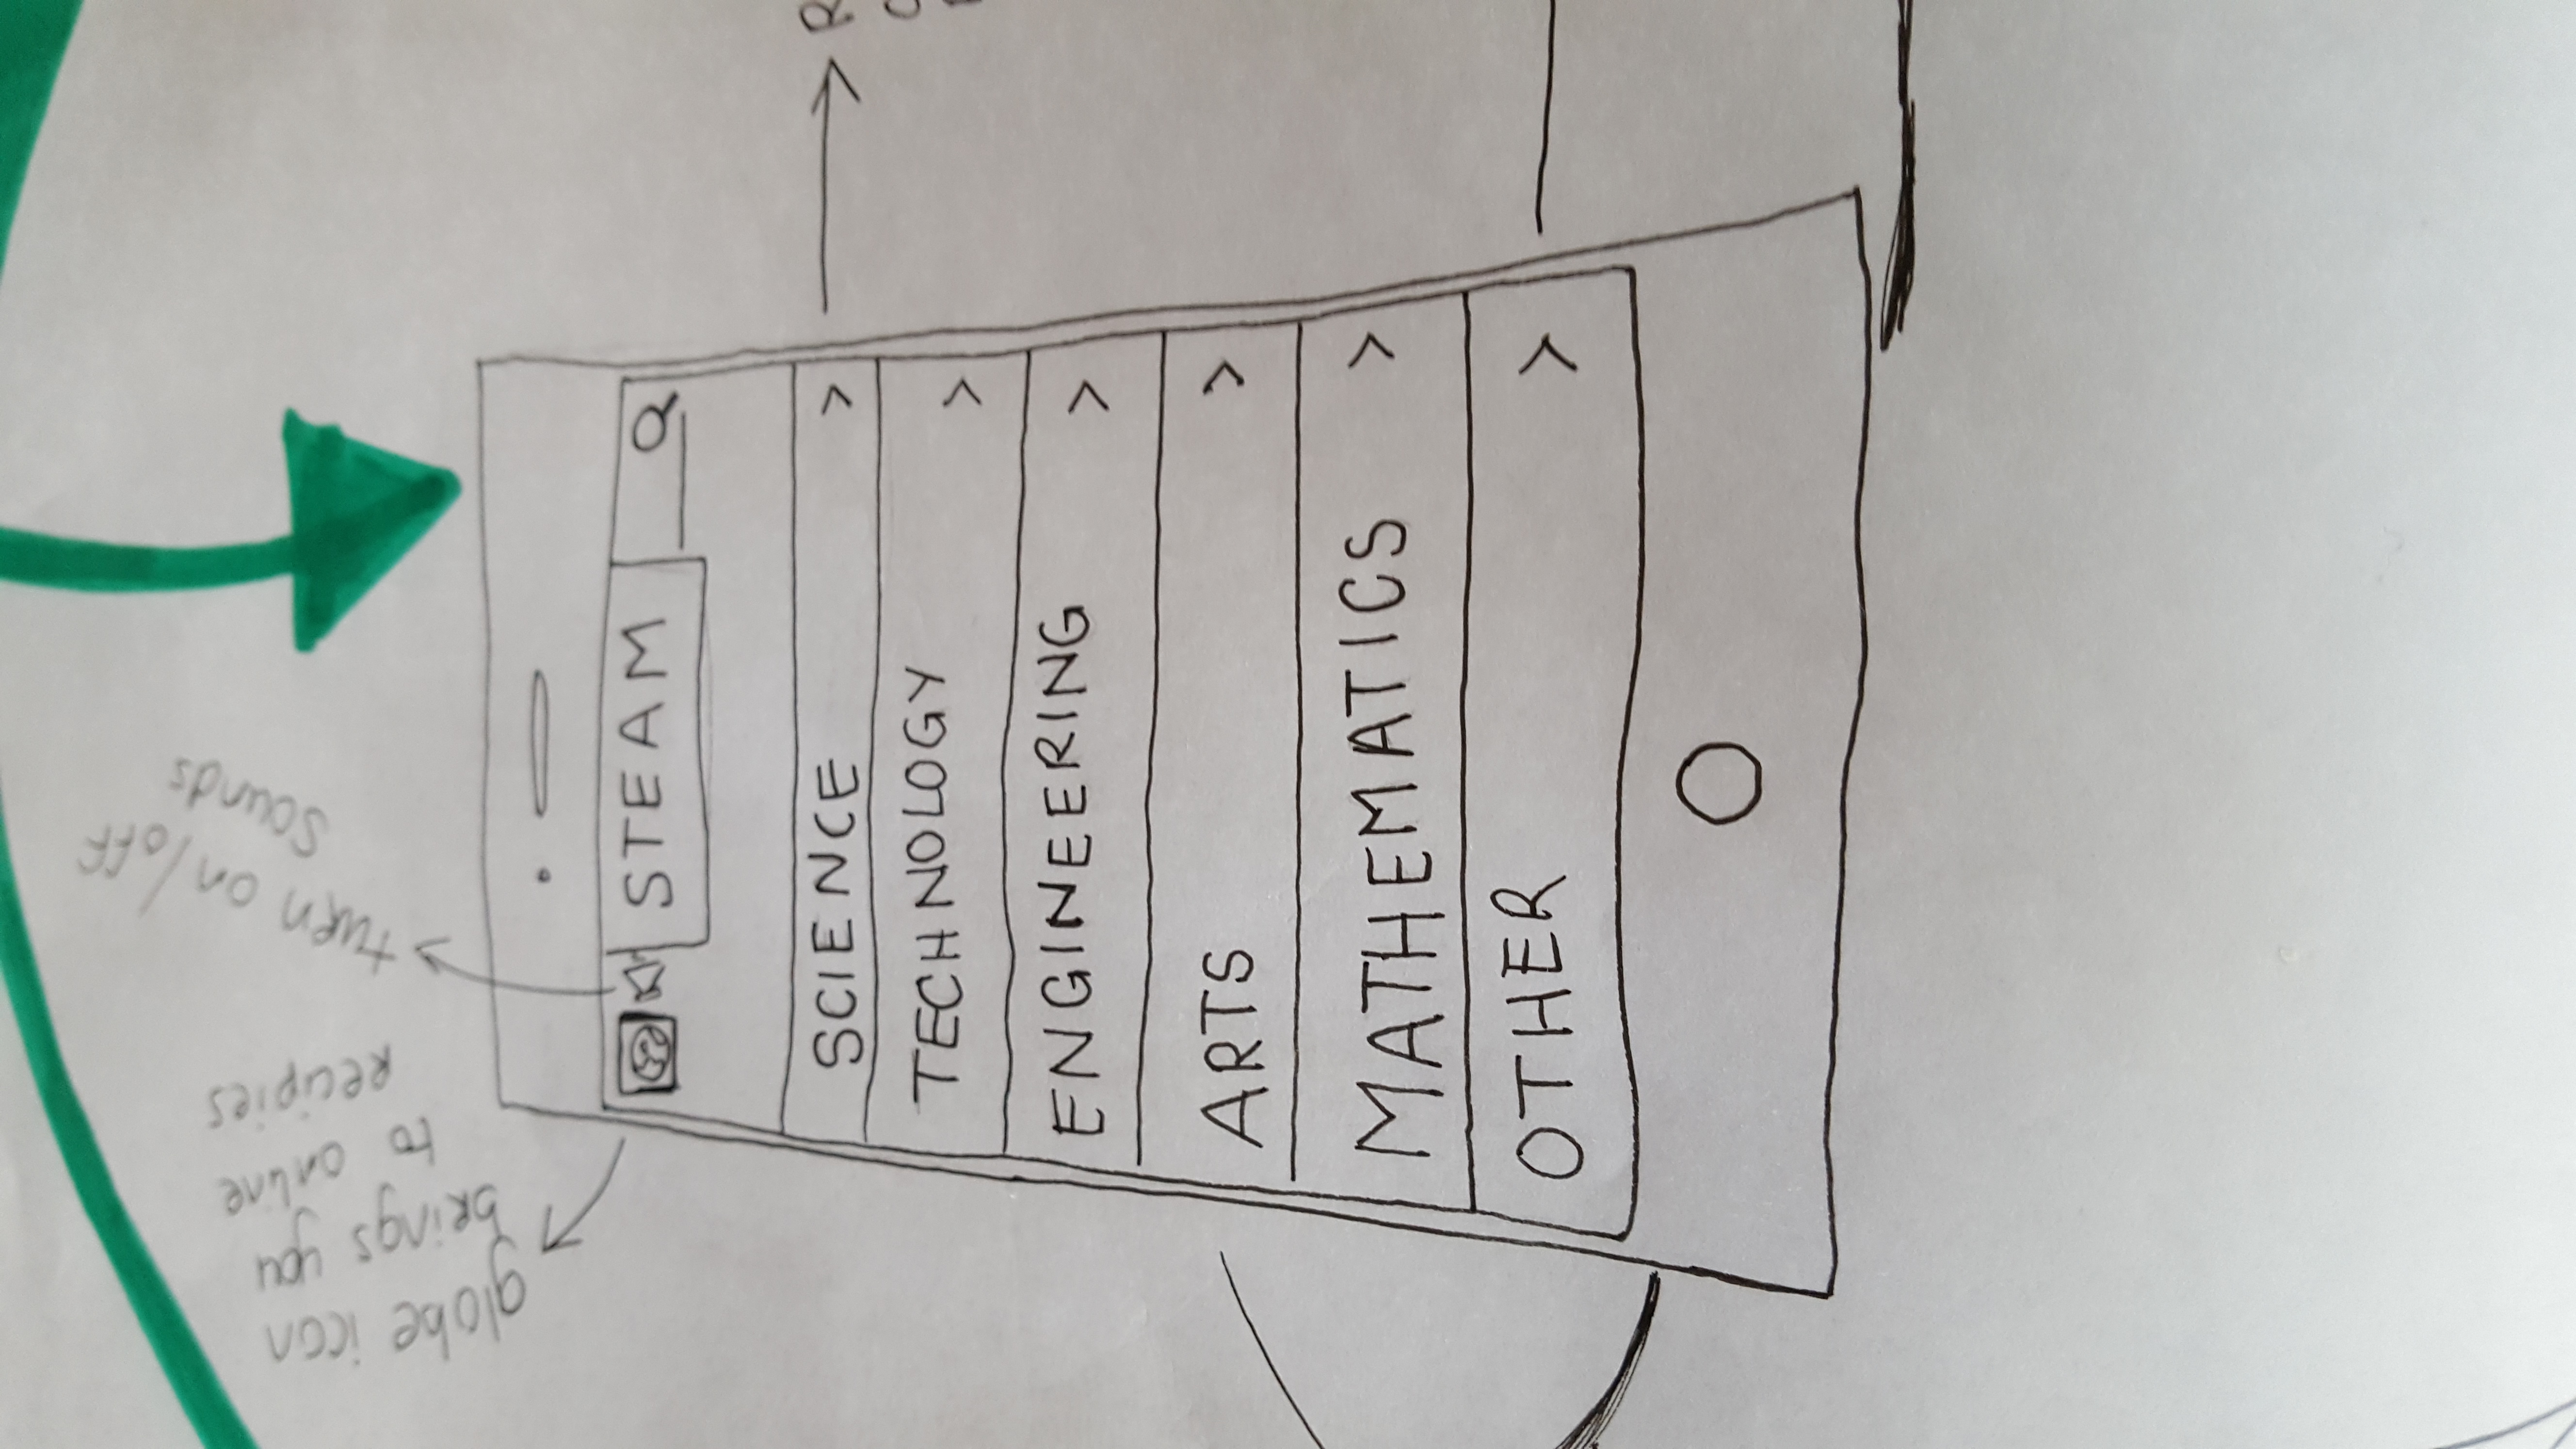 globe icon
brings you
to online
recipies
turn on/off
sounds
STEAM
SCIENCE >
TECHNOLOGY >
ENGINEERING >
ARTS >
MATHEMATICS >
OTHER >